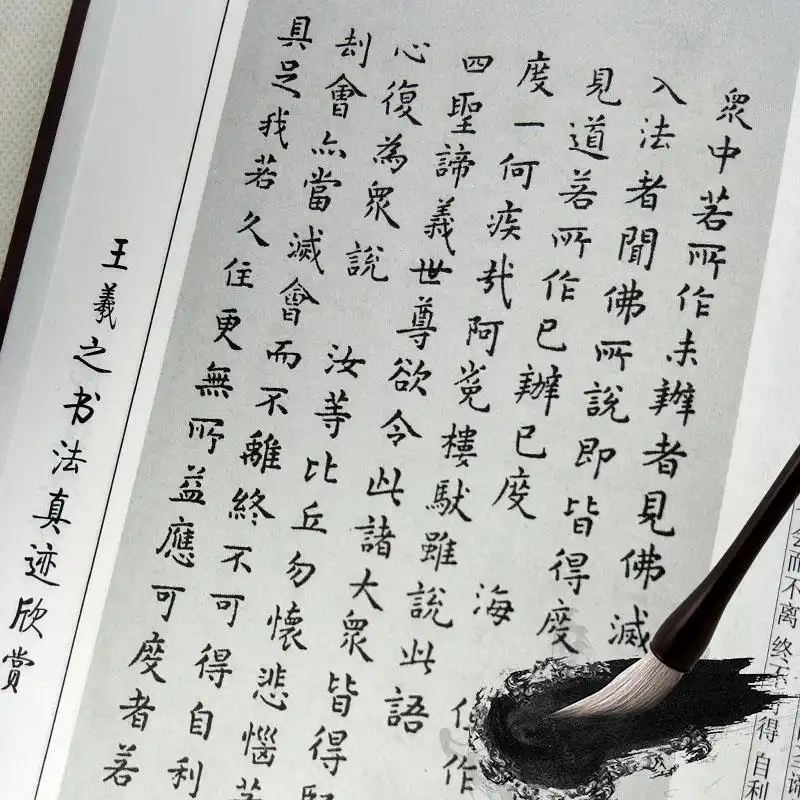 衆中若所作未辦者見佛滅
入法者聞佛所說即皆得度
見道若所作已辦已度 海
度一何疾哉阿㝹樓馱雖說此語
四聖諦義世尊欲令此諸大衆皆得
心復為衆說 汝等比丘勿懷悲惱若
刦會亦當滅會而不離終不可得自利
具足我若久住更無所益應可度者若
王羲之书法真迹欣赏
会而不离 终 得 自利